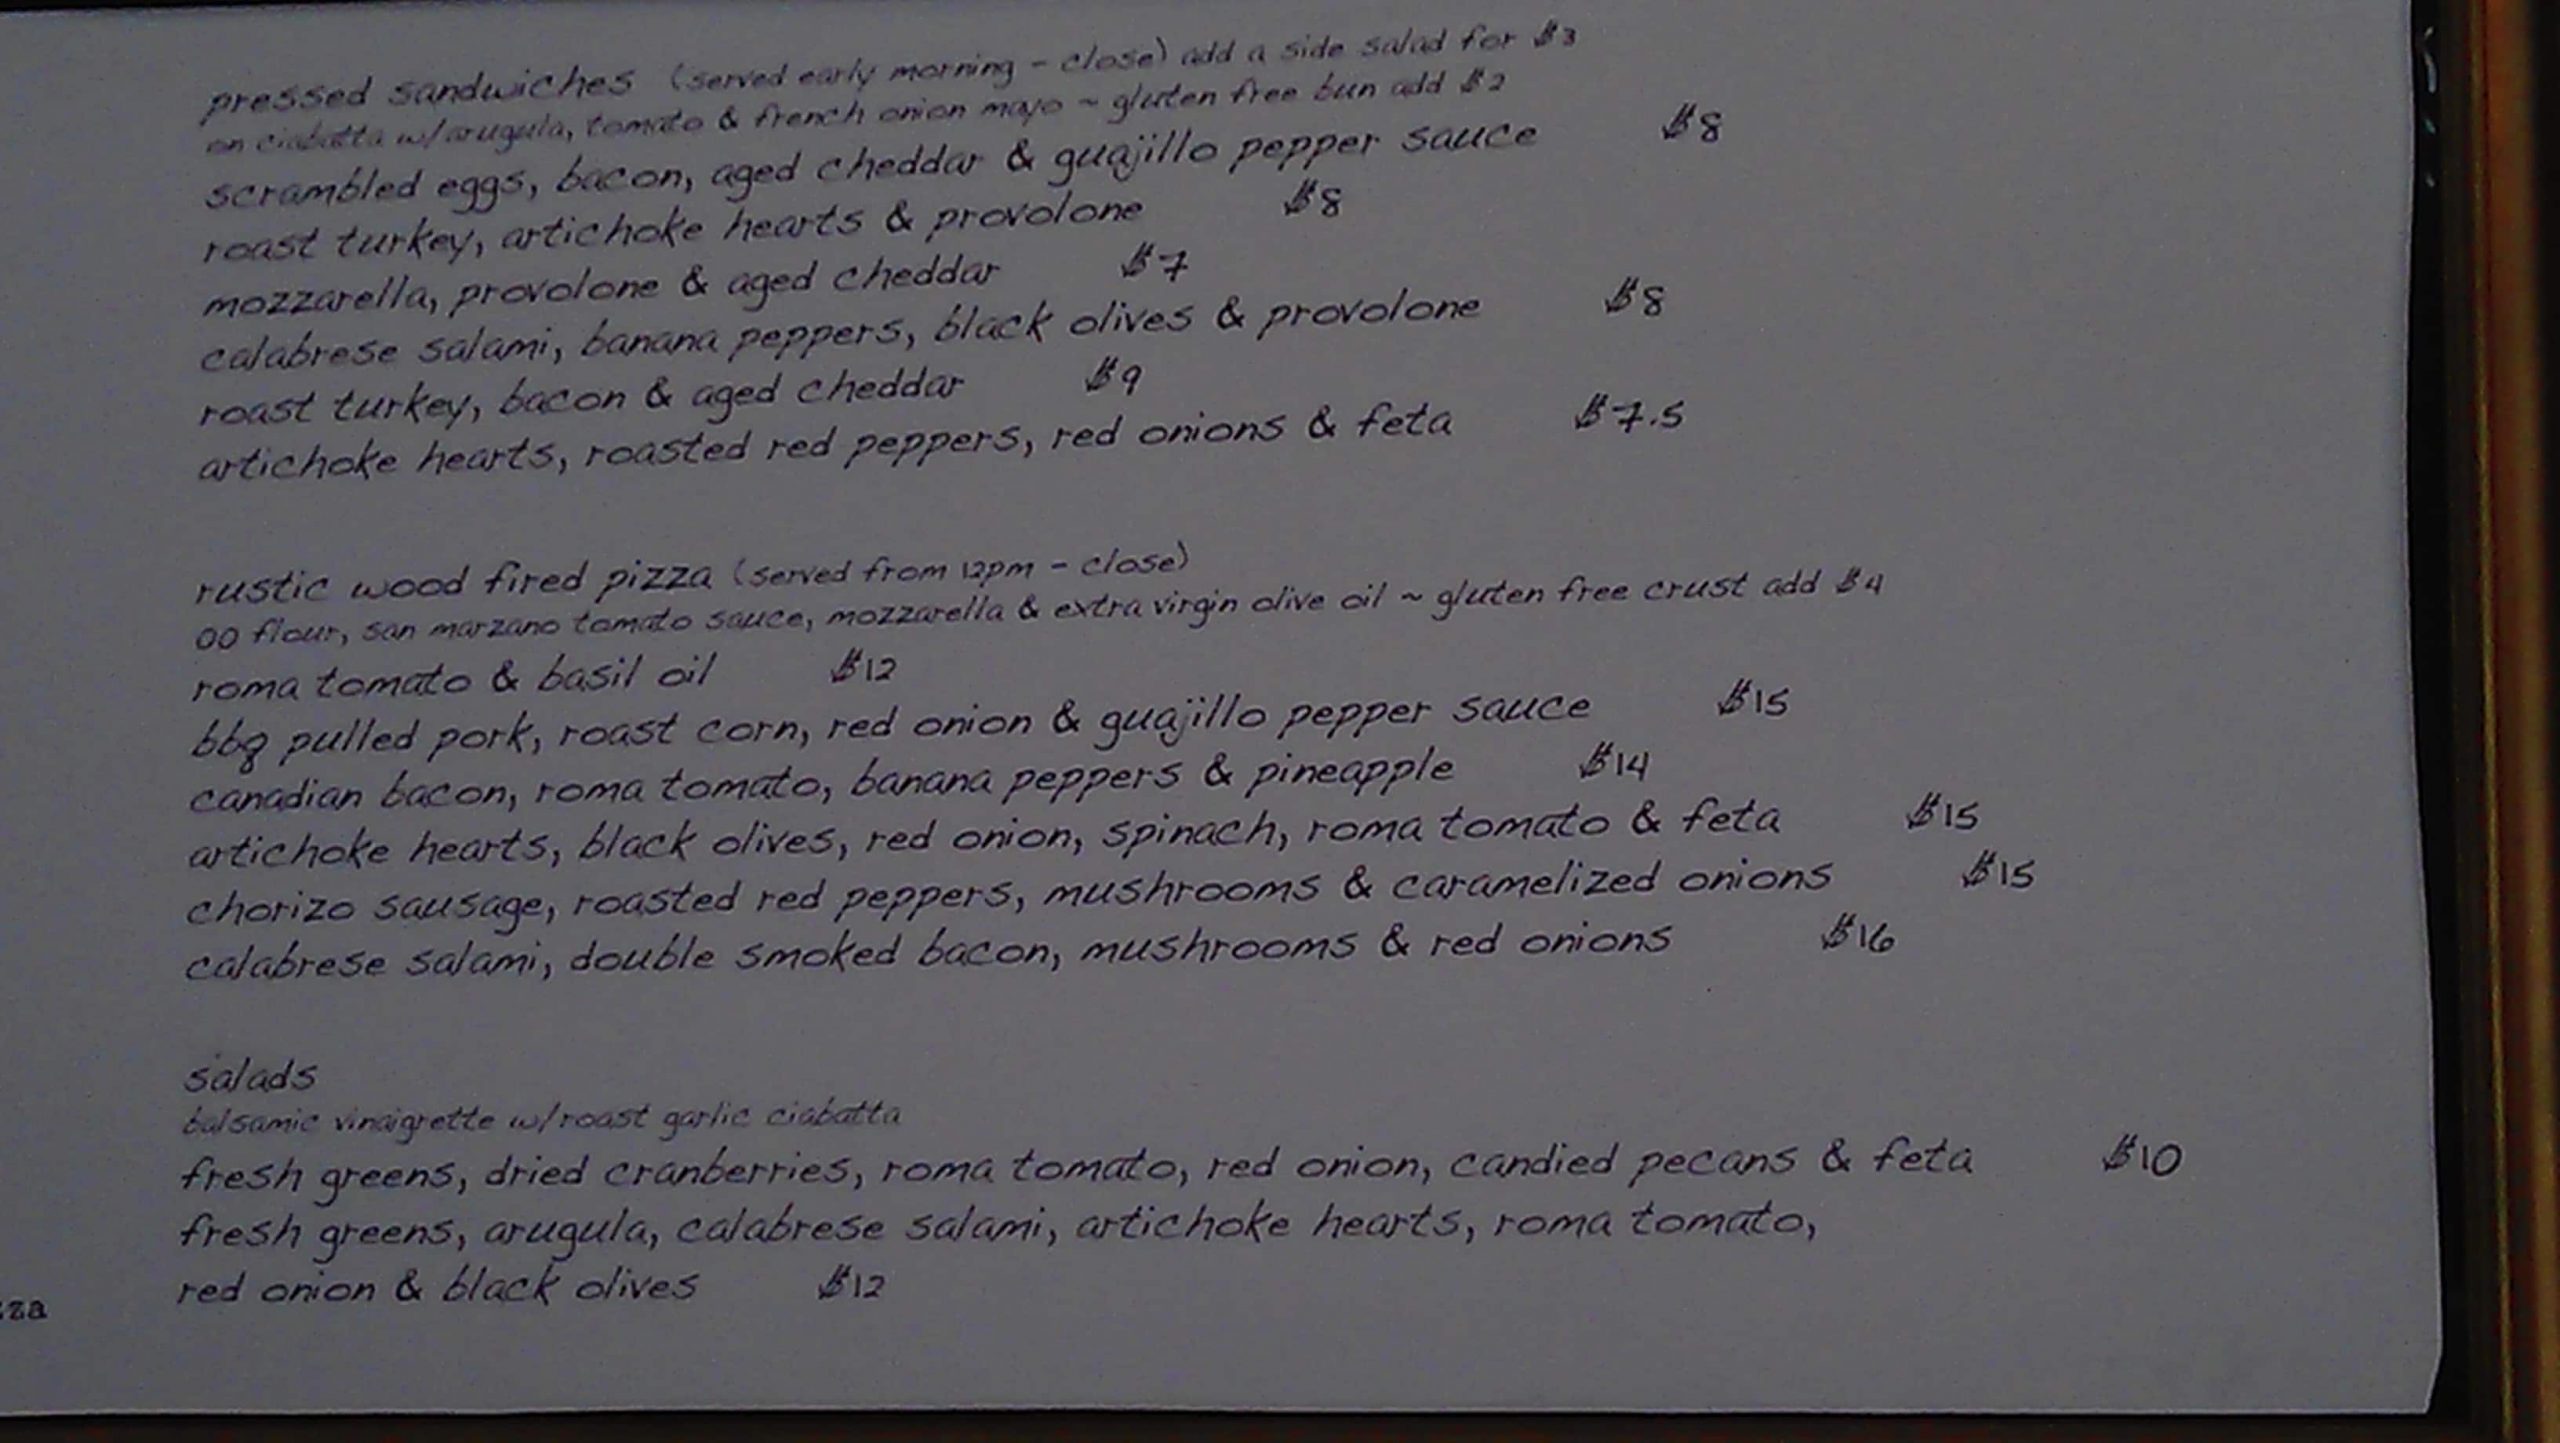 pressed sandwiches (served early morning - close) add a side salad for $3
on ciabatta w/arugula, tomato & french onion mayo ~ gluten free bun add $2
scrambled eggs, bacon, aged cheddar & guajillo pepper sauce $8
roast turkey, artichoke hearts & provolone $8
mozzarella, provolone & aged cheddar $7
calabrese salami, banana peppers, black olives & provolone $8
roast turkey, bacon & aged cheddar $9
artichoke hearts, roasted red peppers, red onions & feta $7.5
rustic wood fired pizza (served from 12pm - close)
00 flour, san marzano tomato sauce, mozzarella & extra virgin olive oil ~ gluten free crust add $4
roma tomato & basil oil $12
bbq pulled pork, roast corn, red onion & guajillo pepper sauce $15
canadian bacon, roma tomato, banana peppers & pineapple $14
artichoke hearts, black olives, red onion, spinach, roma tomato & feta $15
chorizo sausage, roasted red peppers, mushrooms & caramelized onions $15
calabrese salami, double smoked bacon, mushrooms & red onions $16
salads
balsamic vinaigrette w/roast garlic ciabatta
fresh greens, dried cranberries, roma tomato, red onion, candied pecans & feta $10
fresh greens, arugula, calabrese salami, artichoke hearts, roma tomato,
red onion & black olives $12